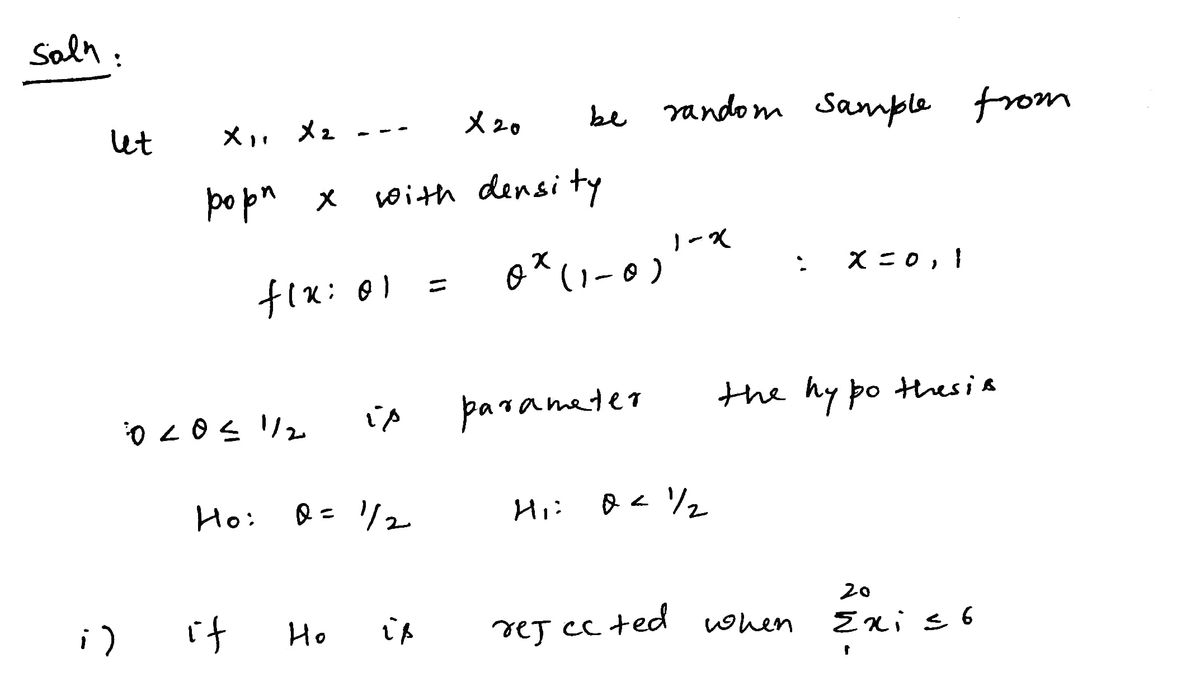 Soln :
let x1, x2 --- x20 be random sample from
popn x with density
f(x: θ) = θ^x (1-θ)^1-x : x = 0, 1
:0 < θ ≤ 1/2 is parameter the hypothesis
Ho: θ = 1/2 H1: θ < 1/2
i) if Ho is rejected when 20 Σ 1 xi ≤ 6